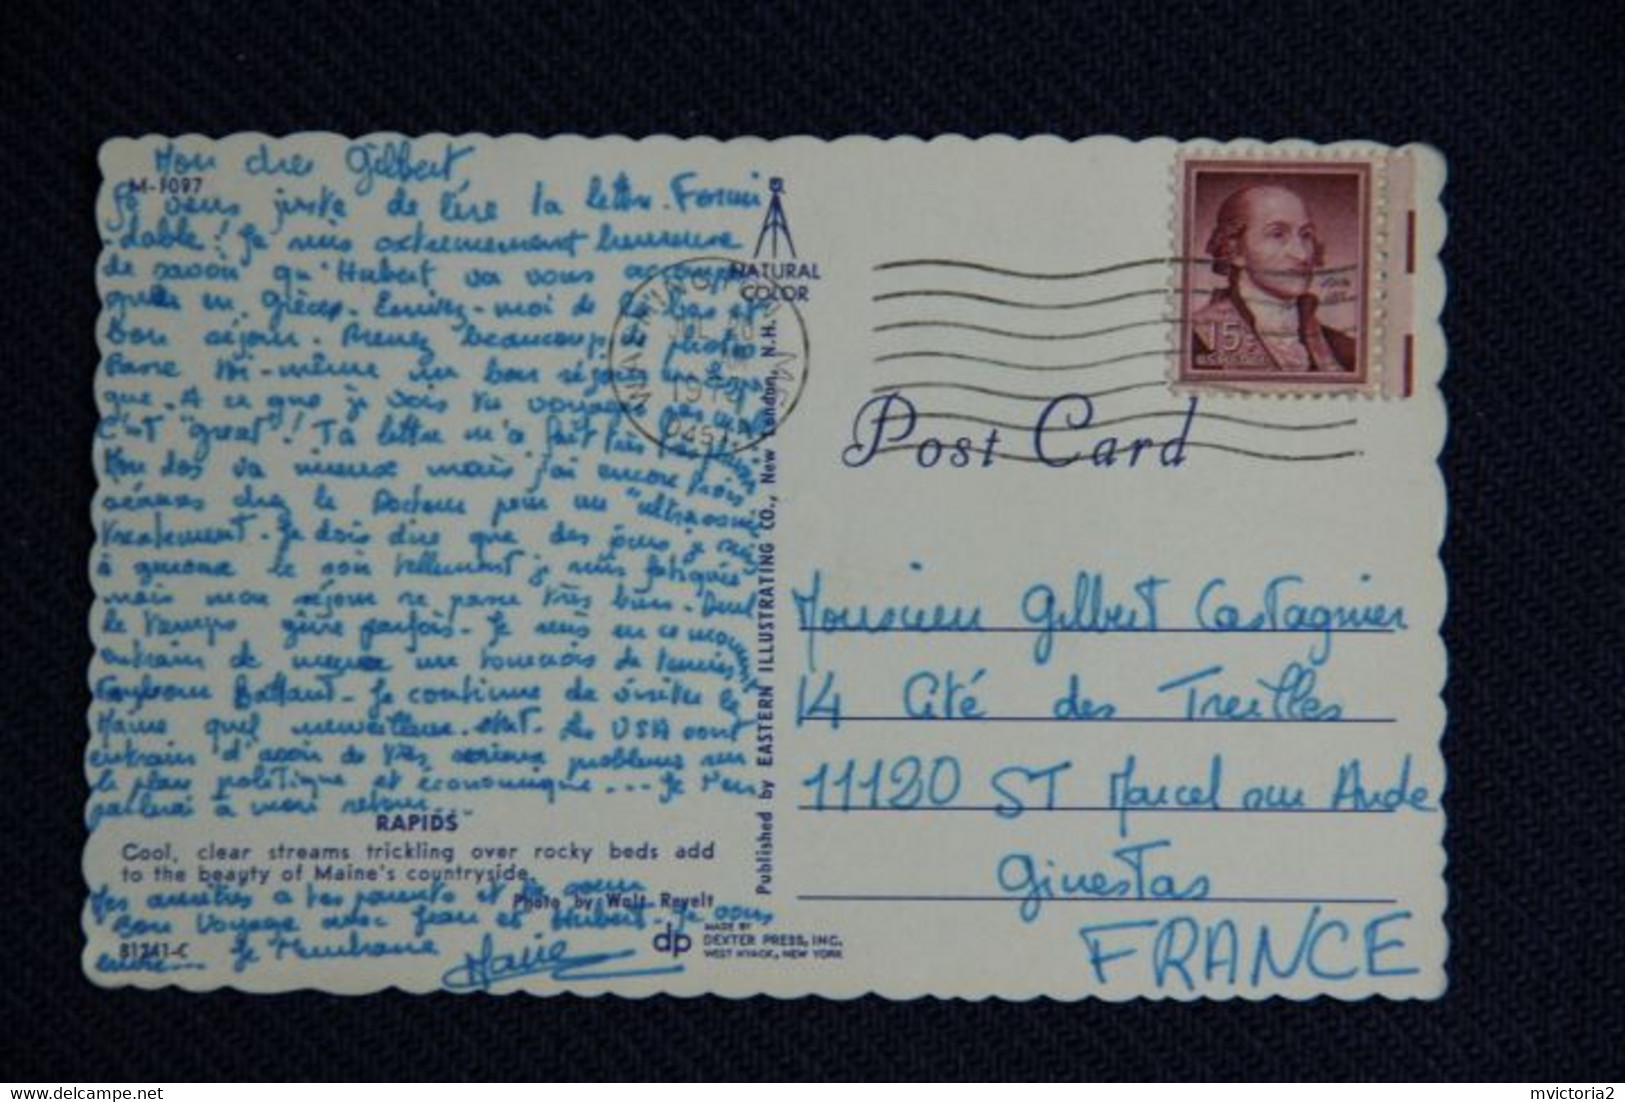 Mon cher Gilbert,
M-1097
Je viens juste de lire ta lettre. Formi
-dable! Je suis extrêmement heureuse
de savoir qu'Hubert va vous accompa
gner en Grèce. Envoyez-moi de là bas et
Bon séjour. Prenez beaucoup de photos
Passe toi-même un bon séjour
que. A ce que je vois tu voyages pas mal
C'est "great"! Ta lettre m'a fait très plaisir
Mon dos va mieux mais j'ai encore trois
séances chez le Docteur pour un "ultrasonic
treatment. Je dois dire que des jours je suis
à genoux le soir tellement je suis fatiguée
mais mon séjour se passe très bien. Seul
le temps gêne parfois. Je suis en ce moment
entrain de un tournois de tennis
Je continue de visiter le
Maine quel merveilleux état. Les USA sont
entrain d'avoir de très sérieux problèmes sur
le plan politique et économique... Je t'en
parlerai à mon retour
RAPIDS
Cool, clear streams trickling over rocky beds add
to the beauty of Maine's countryside.
Photo by Walt Revelt
Mes amitiés à tes parents et ta soeur
Bon Voyage avec Jean et Hubert. Je vous
81241-C
Marie
NATURAL
COLOR
Published by EASTERN ILLUSTRATING CO., New London, N.H.
dp
MADE BY
DEXTER PRESS, INC.
WEST NYACK, NEW YORK
15¢
Post Card
Monsieur Gilbert Castagnier
14 Cité des Treilles
11120 ST Marcel sur Aude
Ginestas
FRANCE
mvictoria2